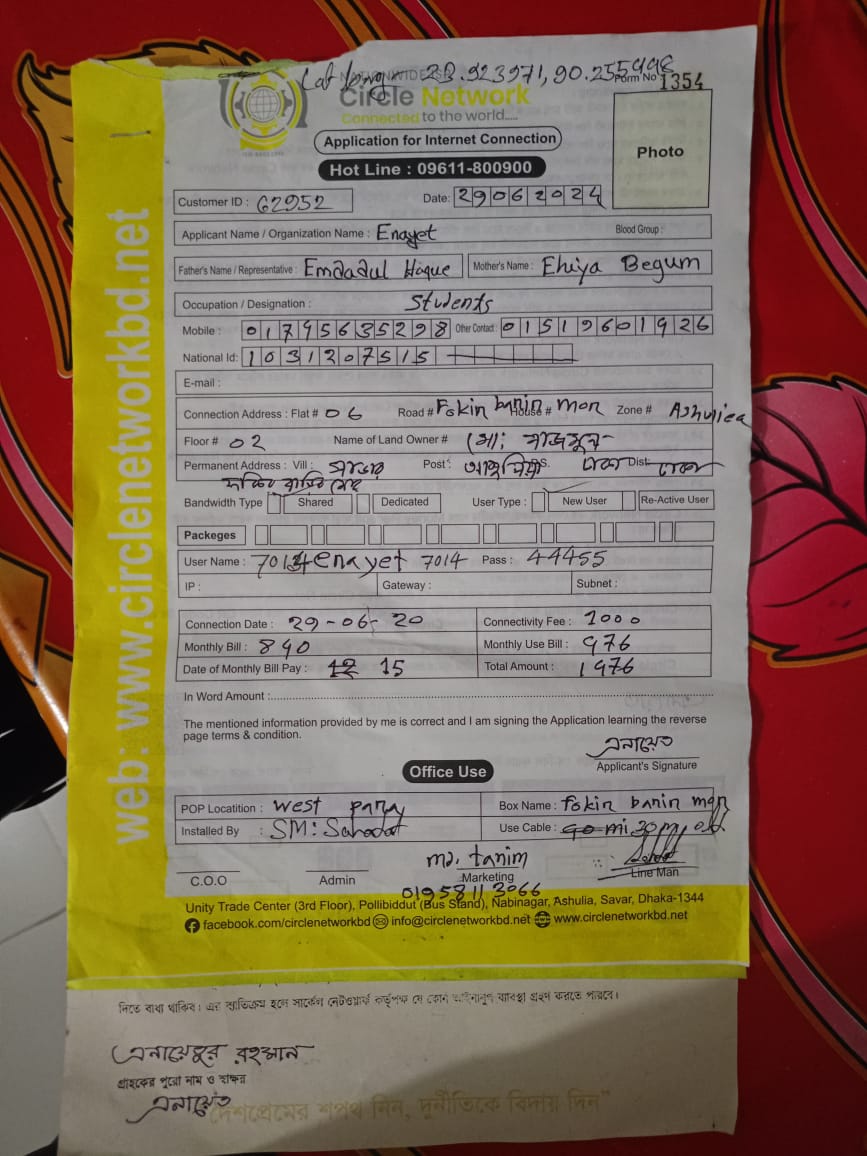 Lat long 23.923971, 90.255998
NATIONWIDE ISP
Form No 1354
Circle Network
Connected to the world.....
Application for Internet Connection
Photo
Hot Line : 09611-800900
Customer ID : 62952 Date: 29062024
Applicant Name / Organization Name : Enayet Blood Group :
Father's Name / Representative : Emdadul Haque Mother's Name : Ehiya Begum
Occupation / Designation : Students
Mobile : 01795635298 Other Contact : 01519601926
National Id: 1031207515
E-mail :
Connection Address : Flat # 06 Road # Fokin banin House # mon Zone # Ashuliea
Floor # 02 Name of Land Owner # মো: নাজমুল
Permanent Address : Vill : সাভার Post : আশুলিয়া P.S. ঢাকা Dist: ঢাকা
Bandwidth Type Shared Dedicated User Type : New User Re-Active User
Packeges
User Name : enayet 7014 Pass : 44455
IP : Gateway : Subnet :
Connection Date : 29-06-20 Connectivity Fee : 1000
Monthly Bill : 890 Monthly Use Bill : 976
Date of Monthly Bill Pay : 15 Total Amount : 1976
In Word Amount :
The mentioned information provided by me is correct and I am signing the Application learning the reverse
page terms & condition.
এনায়েত
Applicant's Signature
Office Use
POP Locatition : West para Box Name : Fokin banin man
Installed By : SM: Sahadat Use Cable : 30 m, old
md. tanim
C.O.O Admin Marketing Line Man
01958113066
Unity Trade Center (3rd Floor), Pollibiddut (Bus Stand), Nabinagar, Ashulia, Savar, Dhaka-1344
facebook.com/circlenetworkbd info@circlenetworkbd.net www.circlenetworkbd.net
web: www.circlenetworkbd.net
দিতে বাধ্য থাকিব। এর ব্যতিক্রম হলে সার্কেল নেটওয়ার্ক কর্তৃপক্ষ যে কোন আইনানুগ ব্যবস্থা গ্রহণ করতে পারবে।
এনায়েতুর রহমান
গ্রাহকের পুরো নাম ও স্বাক্ষর
এনায়েত
"দেশপ্রেমের শপথ নিন, দুর্নীতিকে বিদায় দিন"